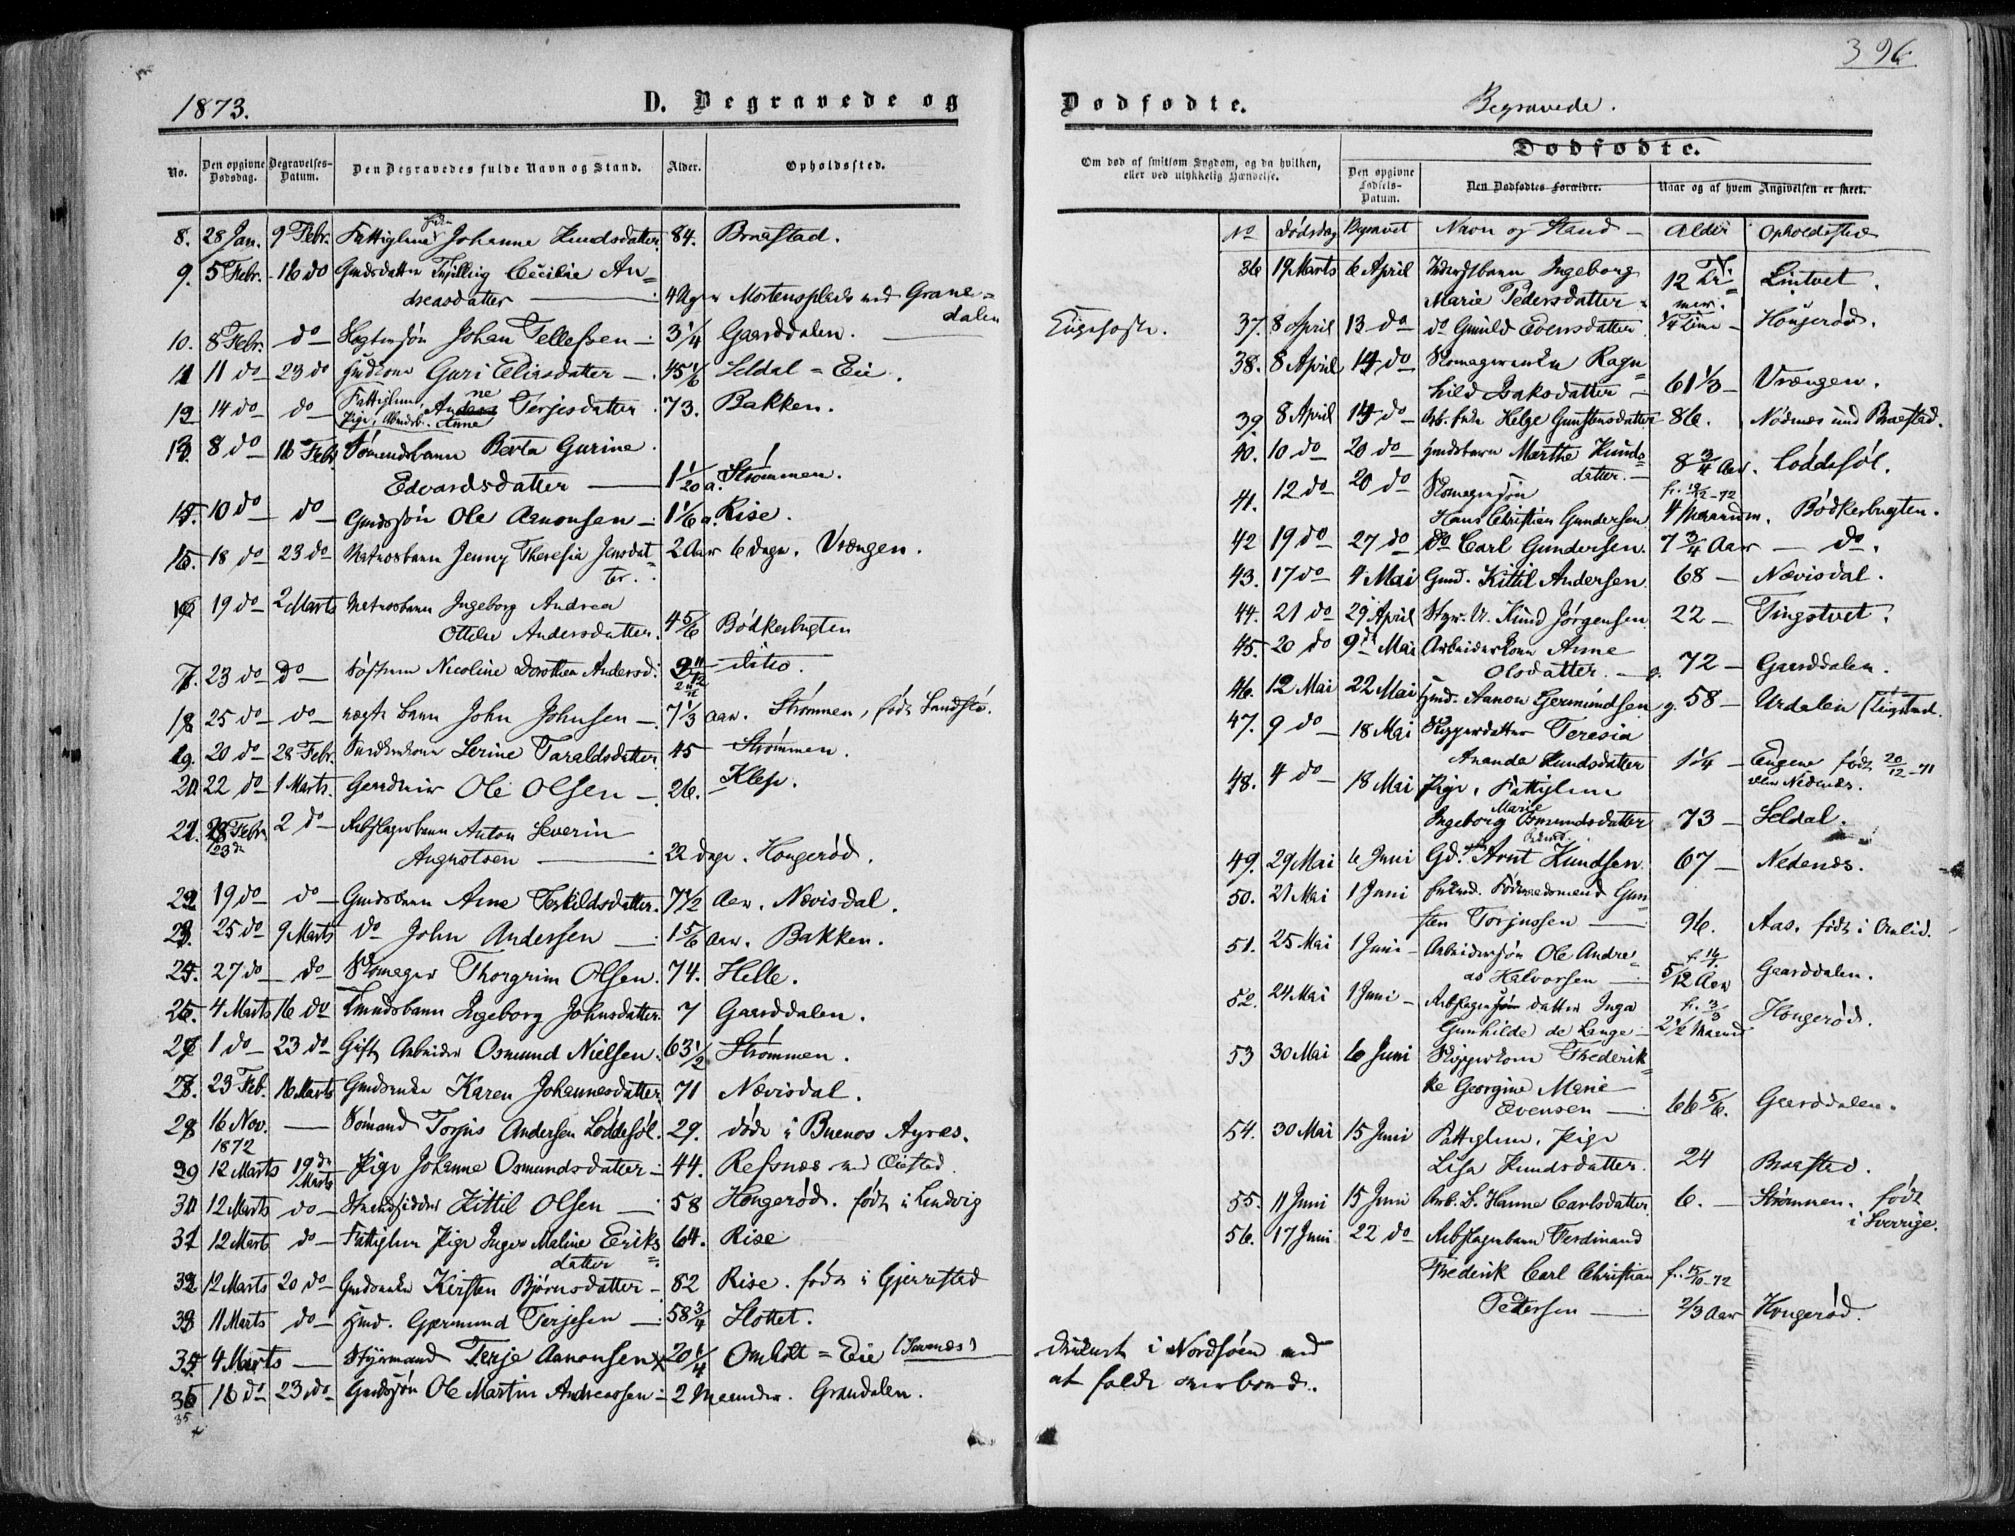 1873.
D. Begravede og
No.
Den opgivne Dødsdag.
Begravelses-Datum.
Den Begravedes fulde Navn og Stand.
Alder.
Opholdssted.
8. 28 Jan. 9 Febr. Fattiglem Johanne Knudsdatter 84. Braastad.
9. 5 Febr. 16 do Gmdsdatter Tvilling Cecilie An=
dreasdatter — 4 Uger Mortensplads ved Grane=
dalen
10. 8 Febr. do — Johan Tellefsen — 3 1/4 Gaarddalen.
11 11 do — 23 do Guri Eliasdatter — 45 1/6 Seldal = Eie.
12 14 do — do — Fattiglem, Anne Terjesdatter 73. Bakken.
13. 8 do — 16 Febr. Sømandsbarn Berta Gurine
Edvardsdatter — 1 1/20 a. Strømmen.
10 do — do — Gmdssøn Ole Aanonsen — 1 1/6 a. Rise.
15. 18 do 23 do Matrosbarn Jenny Theresia Jensdat=
ter. 2 Aar 6 Dage. Vrængen.
19 do — 2 Marts Matrosbarn Ingeborg Andrea
Ottilie Andersdatter. 4 5/6 Bødkerbugten
23 do — do — Nicoline Dorothea Andersd. ditto.
18 25 do — do — uægte Barn John Johnsen — 7 1/3 Aar. Strømmen, født Sandstø.
19. 20 do — 28 Febr. Serine Taraldsdatter 45 Strømmen.
20 22 do — 1 Marts. Ole Olsen — 26. Klep.
21. 2 do — Rebslagerbarn Anton Severin
Augustsen — 22 Dage. Hongerød.
22 19 do — do — Gmdsbarn Anne Terkildsdatter. 7 1/2 Aar. Nævisdal.
23. 25 do 9 Marts do John Andersen — 1 5/6 Aar. Bakken.
27 do — do — Skomager Thorgrim Olsen. 74. Helle.
4 Marts 16 do Ingeborg Johnsdatter. 7 Gaarddalen.
27 1 do — 23 do Gift Arbeider Osmund Nielsen. 63 1/2 Strømmen.
28. 23 Feb. 16 Marts Gmdsenke Karen Johannesdatter. 71 Nævisdal.
16 Nov. — Sømand Torjus Andersen Løddesøl. 29. døde i Buenos Ayres.
1872
12 Marts 19de Marts Pige Johanne Osmundsdatter — 44. Refsnæs ved Øiestad.
12 Marts do — Strandsidder Kittil Olsen — 58 Hongerød. født i Landvig
12 Marts do — Fattiglem Pige Inger Maline Eriks= 64. Rise
datter
12 Marts 20 do — Gmdsenke Kirsten Bjørnsdatter — 82 Rise. født i Gjerrestad
11 Marts do — Gmd. Gjermund Terjesen — 58 3/4 Slottet.
35 4 Marts — Styrmand Terje Aanonsen x 20 1/4 Omholt = Eie
16 do 23 do — Gmdssøn Ole Martin Andreassen — 2 Maaneder. Granedalen.
35
396
Dødfødte.
Begravede.
Om død af smitsom Sygdom, og da hvilken,
eller ved ulykkelig Hændelse.
Dødfødte.
Den opgivne Fødsels-Datum.
Den Dødfødtes Forældre.
Naar og af hvem Angivelsen er skeet.
No Dødsdag Begravet Navn og Stand — Alder Opholdssted
36 19 Marts 6 April Ingeborg
Marie Pedersdatter 12 Ti=
mer. Lintvet.
37. 8 April 13 do — do Gunild Evensdatter 1/4 Time — Hongerød.
38. 8 April 14 do — Skomagerenke Ragn=
hild Isaksdatter — 61 1/3 — Vrængen.
39 8 April 14 do — Helge Gunstensdatter 86. Nødnæs und Braastad.
40. 10 do — 20 do — Gmdsbarn Marthe Knuds=
datter. — 8 3/4 Aar. Løddesøl.
41. 12 do — 20 do — Skomagersøn
Hans Christian Gundersen 4 Maaneder. Bødkerbugten.
42 19 do — 27 do — do Carl Gundersen. 7 3/4 Aar — do.
43. 17 do — 4 Mai Gmd. Kittil Andersen 68 — Nævisdal.
44. 21 do 29 April Knud Jørgensen. 22 — Tingstvet.
45. 20 do 9de Mai Arbeiderkone Anne
Olsdatter. — 72 — Gaarddalen.
46. 12 Mai 22 Mai Gmd. Aanon Germundsen g. 58 — Urdalen
47. 9 do — 18 Mai Skipperdatter Teresia
Ananda Knudsdatter 1 1/4 — født 20/12-71
48. 4 do — 18 Mai Pige, Fattiglem
Ingeborg Marie Osmundsdatter 73 — Seldal.
49. 29 Mai 6 Juni Arnt Knudsen. 67 — Nedenæs.
50. 21 Mai 1 Juni Føderaadsmand Gun=
sten Torjussen — 96. Aas. født i Omlid.
51. 25 Mai 1 Juni — Arbeidersøn Ole Andre=
as Halvorsen — 5/12 Aar Gaarddalen.
52. 24 Mai 1 Juni — datter Inga
Gunhilde de Lange — 2 1/2 Maaned Hongerød.
53 30 Mai 6 Juni Skipperkone Frederik=
ke Georgine Marie
Evensen — 66 5/6. Gaarddalen.
54. 30 Mai 15 Juni Fattiglem, Pige
Lisa Knudsdatter. 24 Braastad.
55. 11 Juni 15 Juni Arb. B. Hanne Carlsdatter 6. — Strømmen. født
i Sverrige.
56. 17 Juni 22 do — Rebslagerbarn Ferdinand
Frederik Carl Christian f. 15/10-72
Petersen — 2/3 Aar Hongerød.
druknet i Nordsøen ved
at falde overbord.